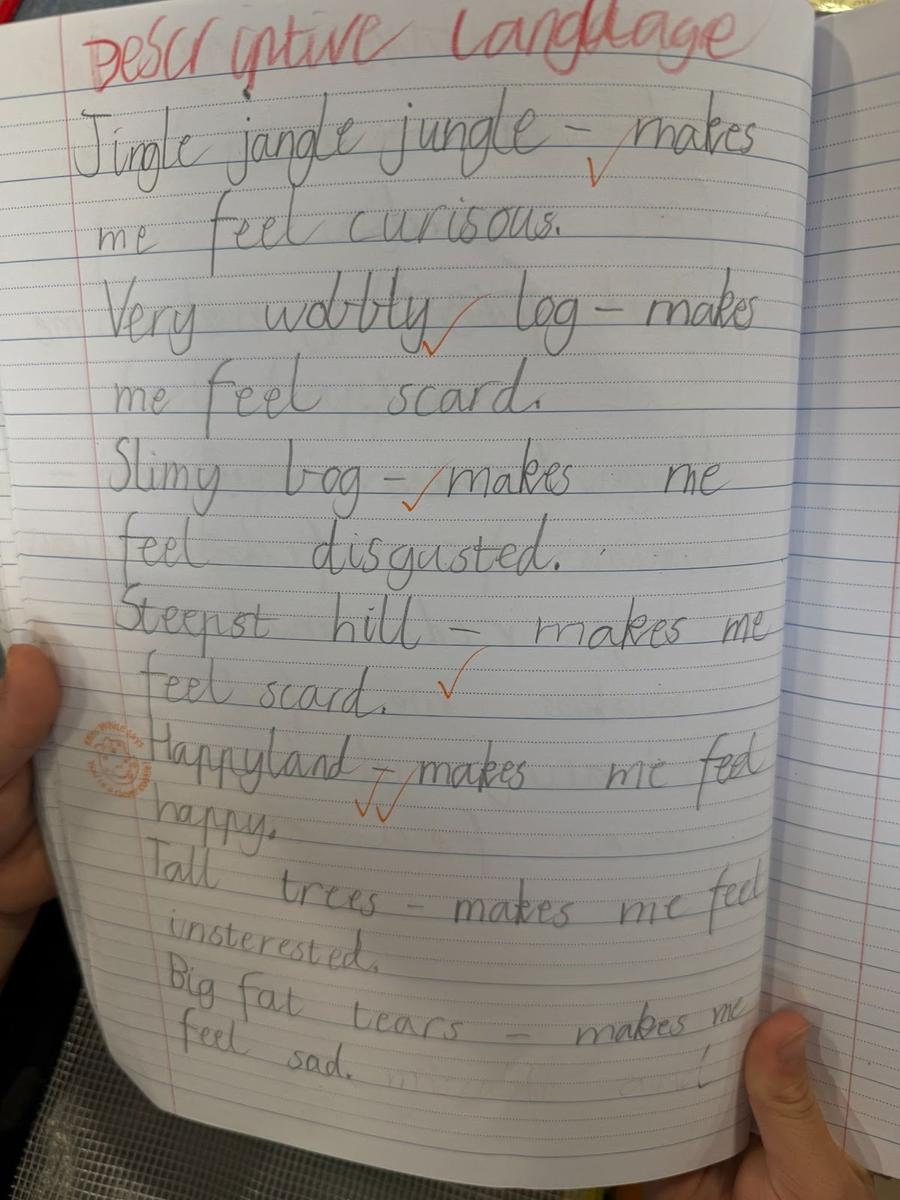 Descriptive Language
Jingle jangle jungle - makes
me feel curisous.
Very wobbly log - makes
me feel scard.
Slimy bog - makes me
feel disgusted.
Steepst hill - makes me
feel scard.
Happyland - makes me feel
happy.
Tall trees - makes me feel
unsterested.
Big fat tears - makes me
feel sad.